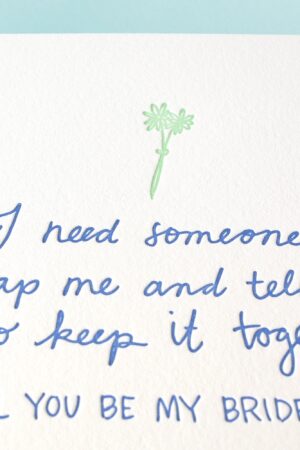 I need someone
ap me and tell
o keep it toge
L YOU BE MY BRIDE